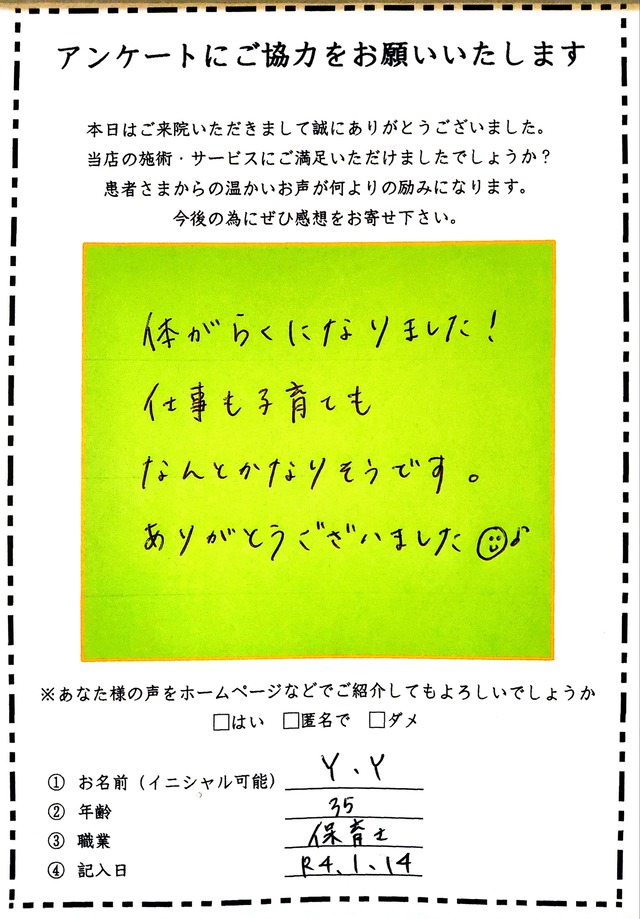 アンケートにご協力をお願いいたします
本日はご来院いただきまして誠にありがとうございました。
当店の施術・サービスにご満足いただけましたでしょうか?
患者さまからの温かいお声が何よりの励みになります。
今後の為にぜひ感想をお寄せ下さい。
体がらくになりました!
仕事も子育ても
なんとかなりそうです。
ありがとうございました☺♪
※あなた様の声をホームページなどでご紹介してもよろしいでしょうか
□はい □匿名で □ダメ
① お名前(イニシャル可能) Y、Y
② 年齢 35
③ 職業 保育士
④ 記入日 R4、1、14